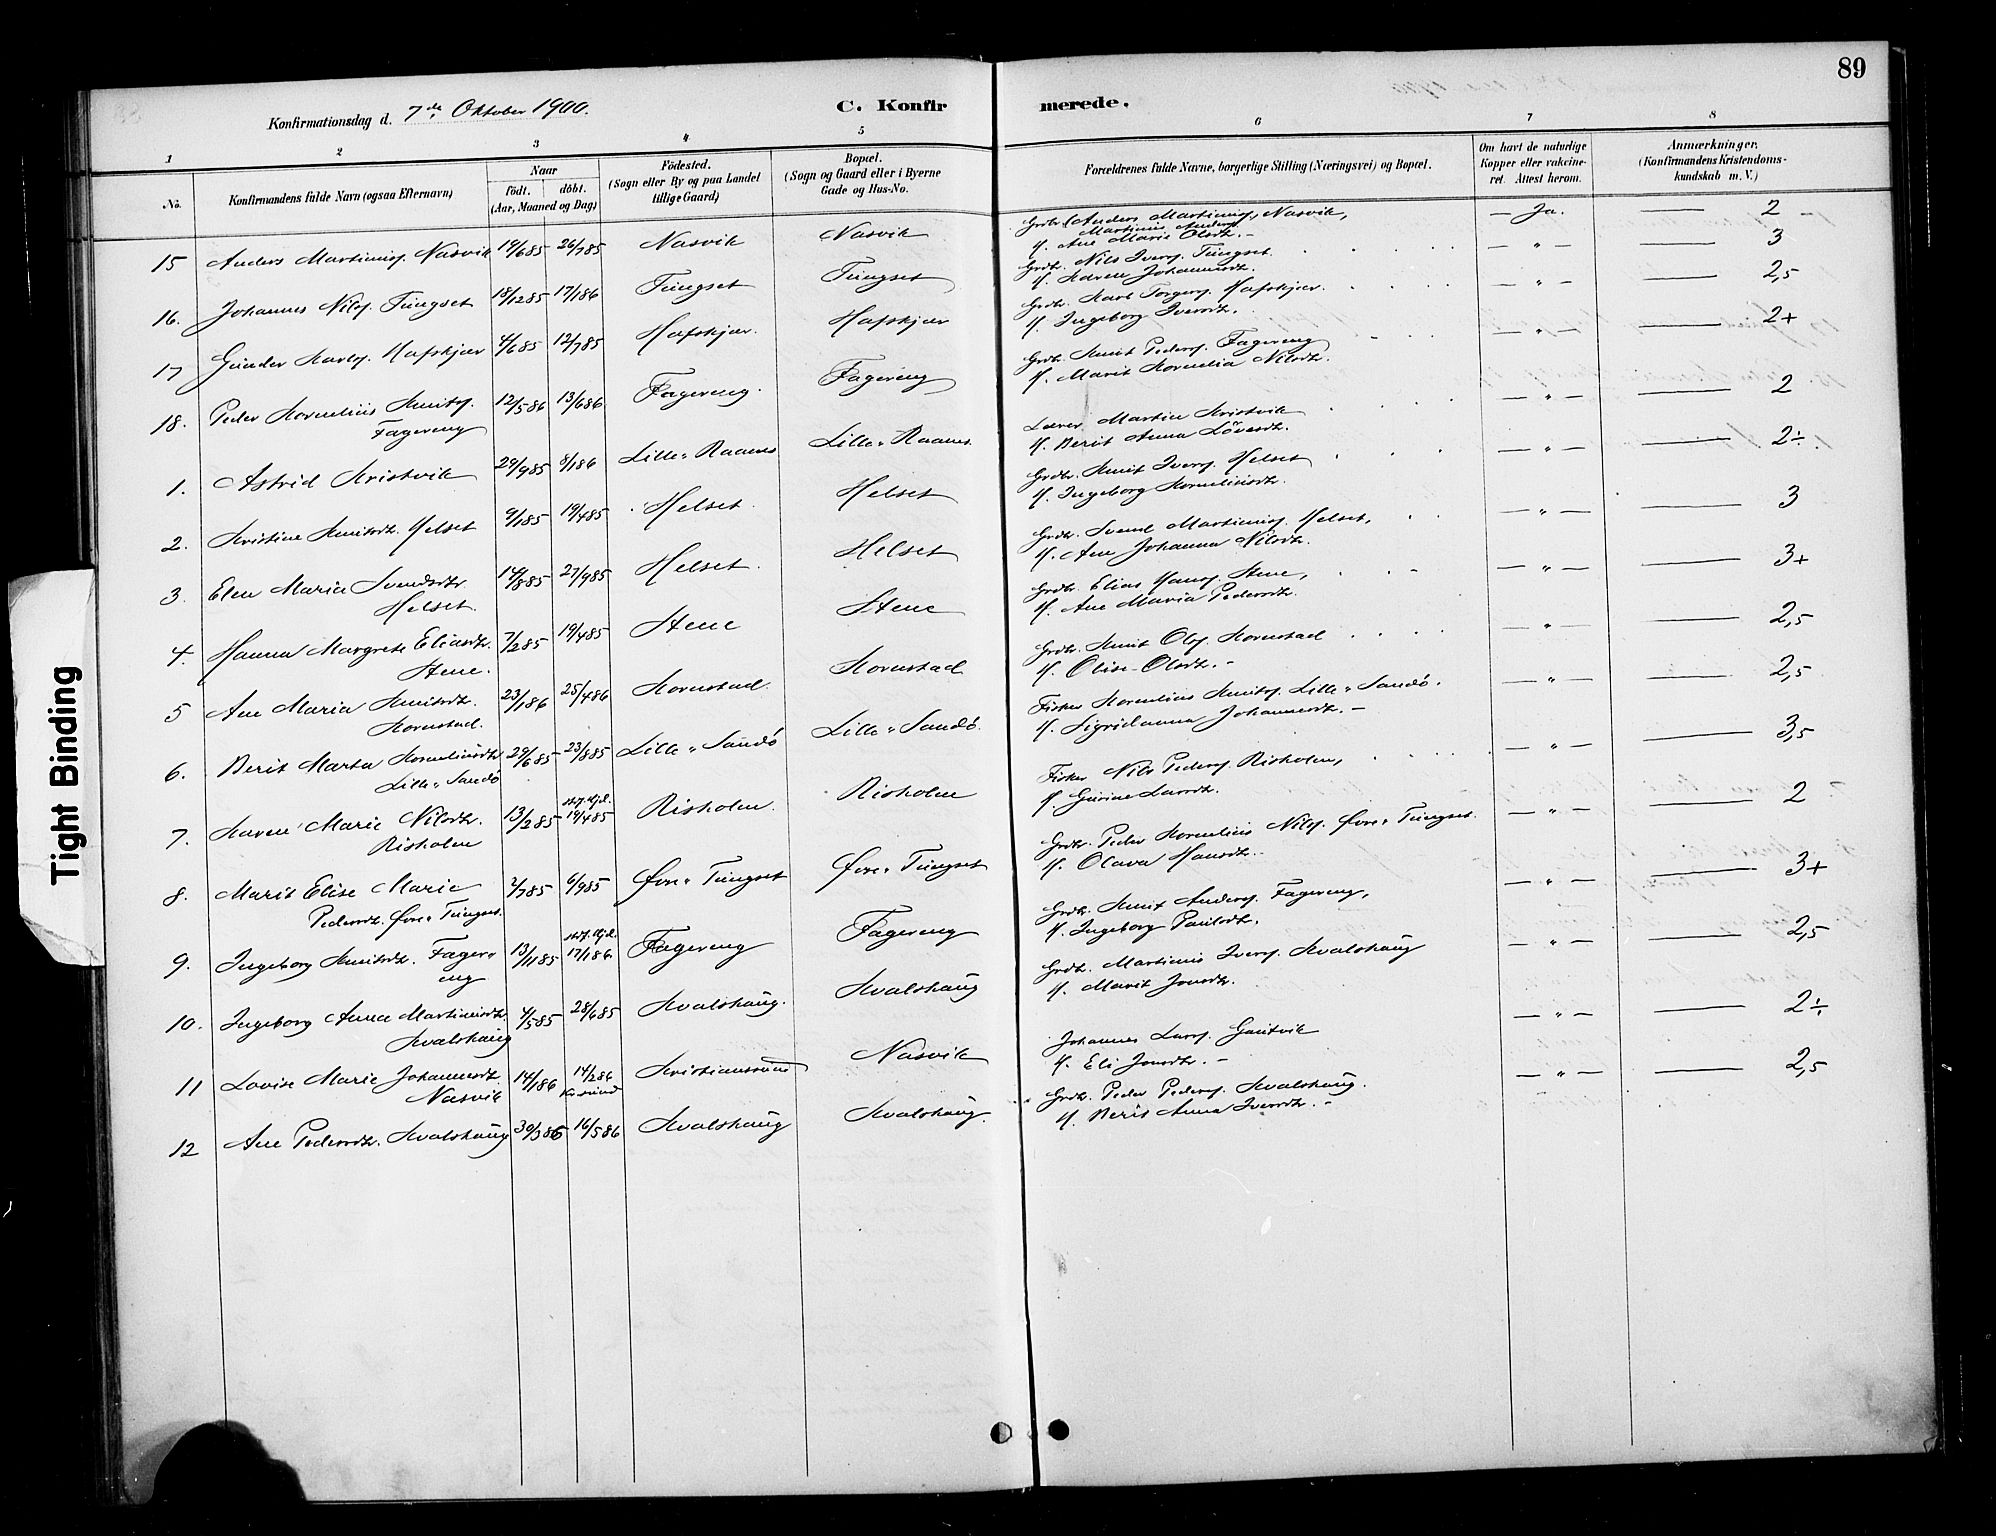 89
Konfirmationsdag d. 7de Oktober 1900.
C. Konfir merede.
1 2 3 4 5 6 7 8
No. Konfirmandens fulde Navn (ogsaa Efternavn) Naar födt. döbt. (Aar, Maaned og Dag)
Födested. (Sogn eller By og paa Landet tillige Gaard)
Bopæl. (Sogn og Gaard eller i Byerne Gade og Hus-No.
Forældrenes fulde Navne, borgerlige Stilling (Næringsvei) og Bopæl.
Om havt de naturlige Kopper eller vakcineret. Attest herom.
Anmærkninger. (Konfirmandens Kristendomskundskab m. V.)
15 Anders Martinuss. Nasvik 19/6 85 26/7 85 Nasvik Nasvik Grdbr. (Anders Martinus., Nasvik, — Ja. — 2
Martinus Anders.
H. Ane Marie Olsdtr. -
16. Johannes Nils. Tungset 18/12 85 17/1 86 Tungset Tungset Grdbr. Nils Ivers. Tungset. — " — 3
H. Karen Johannesdtr.
17 Gunder Karls. Hafskjær 4/6 85 12/7 85 Hafskjær. Hafskjær Grdbr. Karl Torgers. Hafskjær. — " — 2,5
H. Ingeborg Iversdtr.
18. Peder Kornelius Knuts. 12/5 86 13/6 86 Fagereng. Fagereng Grdbr. Knut Peders. Fagereng — " — 2+
Fagereng H. Marit Kornelia Nilsdtr.
1. Astrid Kristvik 29/9 85 8/1 86 Lille-Raanes Lille-Raanes Lærer Martin Kristvik — " — 2
H. Berit Anna Lövesdtr.
2. Kristine Knutsdtr. Helset 9/1 85 19/4 85 Helset. Helset Grdbr. Knut Ivers. Helset — " — 2÷
H. Ingeborg Korneliusdtr.
3. Elen Maria Svendsdtr. 14/8 85 27/9 85 Helset. Helset Grdbr. Svend Martinus. Helset, — " — 3
Helset. H. Ane Johanna Nilsdtr.
4. Hanna Margrete Eliasdtr. 7/2 85 19/4 85 Stene Stene Grdbr. Elias Hans. Stene, — " — 3+
Stene. H. Ane Maria Pedersdtr.
5 Ane Maria Knutsdtr. 23/1 86 25/4 86 Kornstad. Kornstad Grdbr. Knut Ols. Kornstad — " — 2,5
Kornstad. H. Olise Olsdtr. -
6. Berit Marta Korneliusdtr. 29/6 85 23/8 85 Lille-Sandö Lille-Sandö. Fisker Kornelius Knuts. Lille-Sandö. — " — 2,5
Lille-Sandö H. Sigridanna Johannesdtr. -
7. Karen Marie Nilsdtr. 13/2 85 19/4 85 Risholm. Risholm Fisker Nils Peders. Risholm, — " — 3,5
Risholm H. Gurine Larsdtr.
8. Marit Elise Marie 2/7 85 6/9 85 Øvre-Tungset Øvre-Tungset Grdbr. Peder Kornelius Nils. Øvre-Tungset. — " — 2
Pedersdtr. Øvre-Tungset. H. Olava Hansdtr.
9. Ingeborg Knutsdtr. Fager- 13/11 85 17/1 86 Fagereng Fagereng Grdbr. Knut Anders. Fagereng, — " — 3+
eng H. Ingeborg Paulsdtr.
10. Ingeborg Anna Martinusdtr. 4/5 85 28/6 85 Kvalshaug. Kvalshaug Grdbr. Martinus Ivers. Kvalshaug — " — 2,5
Kvalshaug H. Marit Jonsdtr.
11 Lovise Marie Johannesdtr. 14/1 86 14/2 86 Kristianssund Nasvik Johannes Lars. Gautvik — " — 2÷
Nasvik Kr.sund H. Eli Jonsdtr. -
12 Ane Pedersdtr. Kvalshaug 30/3 86 16/5 86 Kvalshaug Kvalshaug. Grdbr. Peder Peders. Kvalshaug. — " — 2,5
H. Berit Anna Iversdtr. -
Tight Binding